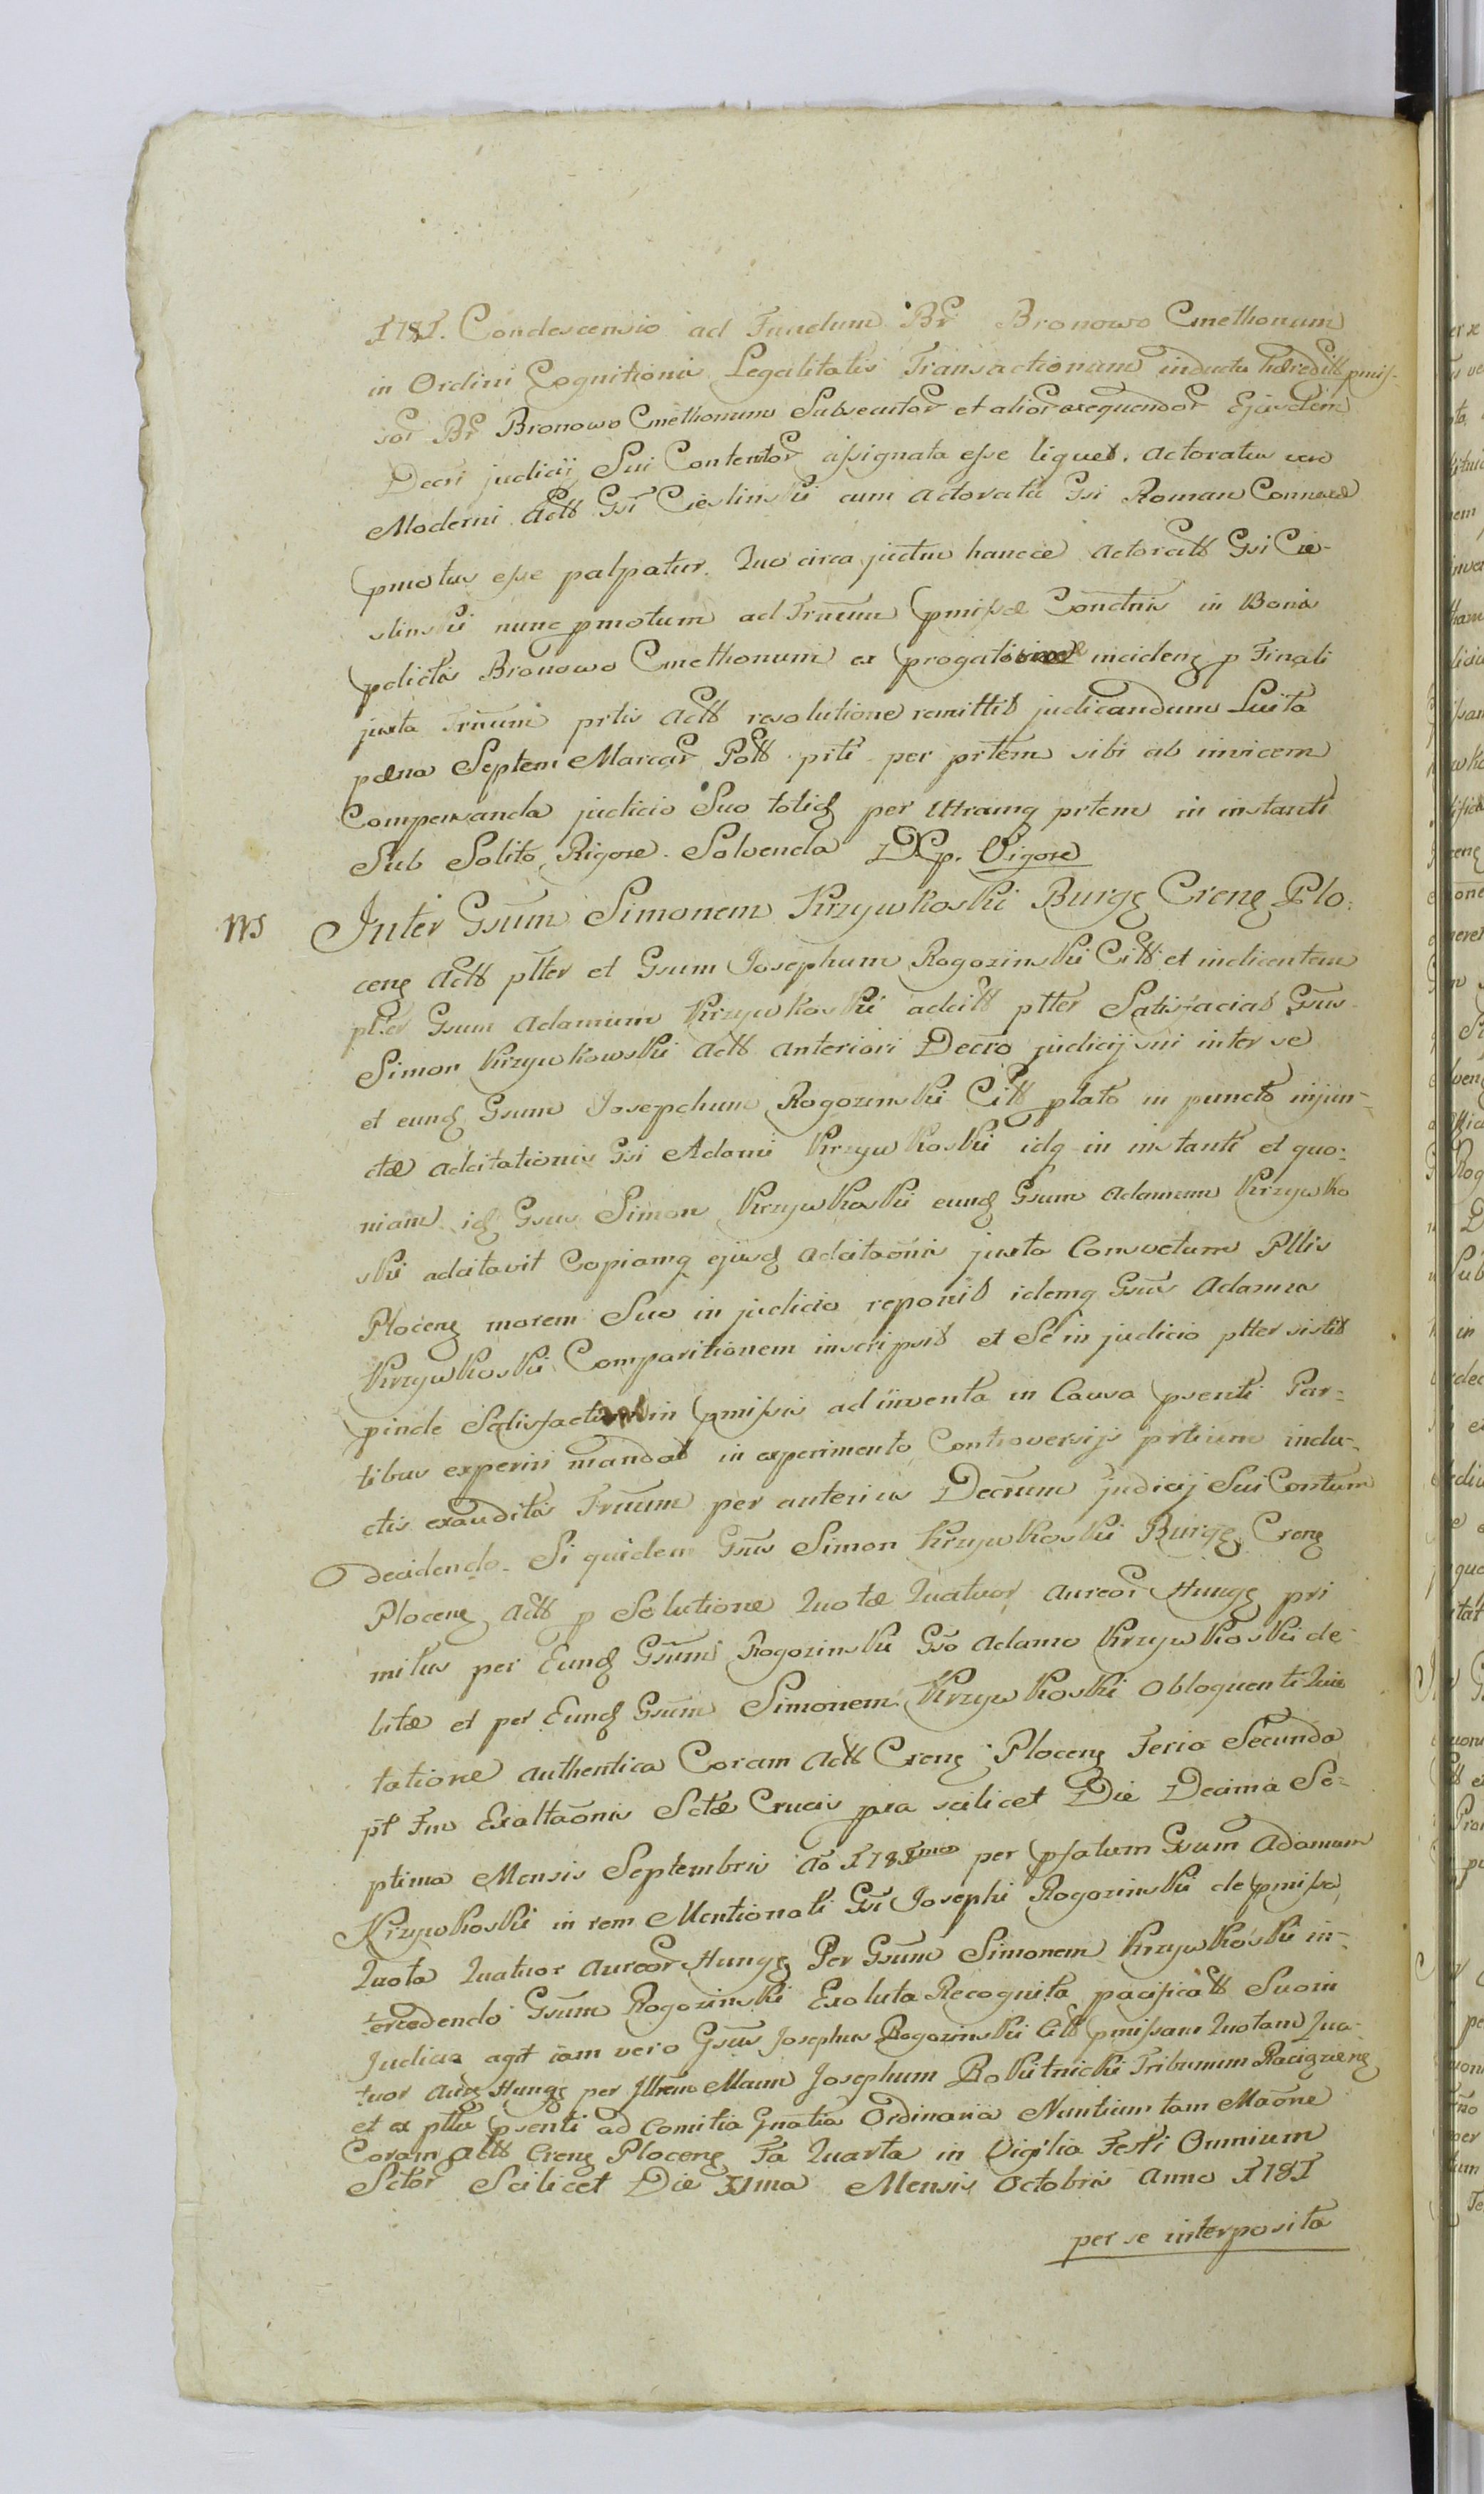 1781. Condescensio ad Fundum Br Bronowo Cmethonum
in Ordini Cognitionis Legalitatis Transactionum inducta hæredit pmis-
sor Br Bronowo Cmethonum Subsecutor et alior exequendor Ejusdem
Decri judicij Sui Contentor assignata esse liquet. Actoratus vero
Moderni Actt Gsi Cieslinski cum Actoratu Gsi Roman Connexe
pmotus esse palpatur. Quo circa juctm huncce Actoratt Gsi Cie-
slinski nunc pmotum ad Trnum pmissæ Condtnis in Bonis
pdictis Bronowo Cmethonum ex progatione incideng p Finali
juxta Trnum prtis Actt resolutione remittit judicandum Luita
pæna Septem Marcar Poll prti per prtem sibi ab invicem
Compensanda judicio Suo totiq per Utramq prtem in instanti
Sub Solito Rigore. Solvenda DXp. Vigore
NS Inter Gsum Simonem Krzywkoski Burgg Creng Plo:
ceng Actt ptter et Gsum Josephum Rogozinski Citt et indicentem
ptter Gsum Adamum Krzywkoski adcitt ptter Satisfaciat Gsus
Simon Krzywkowski Actt Anteriori Decro judicij sui inter se
et eund Gsum Josepchum Rogozinski Citt plato in puncto injun-
ctæ adcitationis Gsi Adami Krzywkoski idq in instanti et quo:
niam id Gsus Simon Krzywkoski eund Gsum Adamum Krzywko
ski adcitavit Copiamq ejusd Adcitaonis juxta Consvetum Pllis
Ploceng morem Suo in judicio reponit idemq Gsus Adamus
Krzywkoski Comparitionem inscripsit et Se in judicio ptter sistit
pinde Satisfactum in pmissis adinventa in Causa psenti Par-
tibus experiri mandat in experimento Controversijs prtium indu-
ctis exauditis Trnum per anterius Decrum judicij Sui Contum
decidendo. Siquidem Gsus Simon Krzywkoski Burgg Creng
Ploceng Actt p Solutione Quotæ Quatuor Aureor Hungg pri
mitus per Eund Gsum Rogozinski Gso Adamo Krzywkoski de
bitæ et per Eund Gsum Simonem Krzywkoski Obloquenti Quie
tatione Authentica Coram Actt Creng Ploceng Feria Secunda
pt Fm Exaltaonis Sctæ Crucis pxa scilicet Die Decima Se-
ptima Mensis Septembris Ao 1781mo per pfatum Gsum Adamum
Krzywkoski in rem Mentionati Gsi Josephi Rogozinski de pmissa
Quota Quatuor Aureor Hungg Per Gsum Simonem Krzywkoski in-
tercedendo Gsum Rogozinski Exoluta Recognita pacificatt Suo in
Judicio agit iam vero Gsus Josephus Rogozinski Citt pmissam Quotam Qua-
tuor Aureg Hungg per Jllrem Maum Josephum Rokitnicki Tribunum Raciązeng
et ex plltu psenti ad Comitia Gnatia Ordinaria Nuntium tam Maone
Coram Actt Creng Ploceng Fa Quarta in Vigilia Festi Omnium
Sctor Scilicet Die 31ma Mensis Octobris Anno 1781
per se interposita